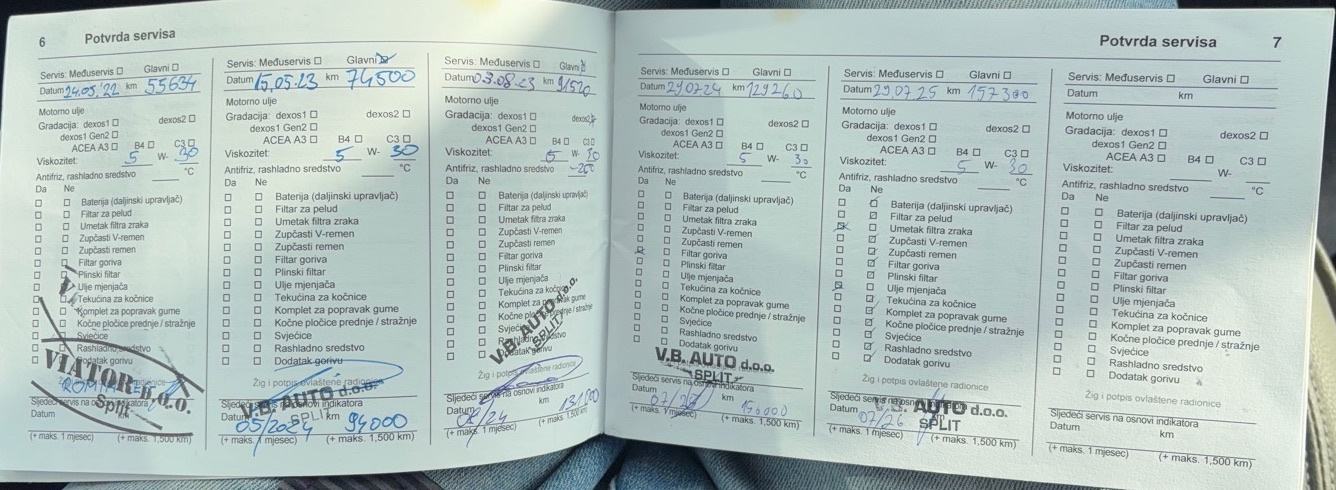 6 Potvrda servisa
Servis: Međuservis ☐ Glavni ☐
Datum 24.05.'22 km 55634
Motorno ulje
Gradacija: dexos1 ☐ dexos2 ☐
dexos1 Gen2 ☐
ACEA A3 ☐ B4 ☐ C3 ☐
Viskozitet: 5 W- 30
Antifriz, rashladno sredstvo °C
Da Ne
Baterija (daljinski upravljač)
Filtar za pelud
Umetak filtra zraka
Zupčasti V-remen
Zupčasti remen
Filtar goriva
Plinski filtar
Ulje mjenjača
Tekućina za kočnice
Komplet za popravak gume
Kočne pločice prednje / stražnje
Svjećice
Rashladno sredstvo
Dodatak gorivu
VIATOR d.o.o.
Split
Sljedeći servis na osnovi indikatora
Datum
(+ maks. 1 mjesec) (+ maks. 1,500 km)
Servis: Međuservis ☐ Glavni ☒
Datum 15.05.23 km 74500
Motorno ulje
Gradacija: dexos1 ☐ dexos2 ☐
dexos1 Gen2 ☐
ACEA A3 ☐ B4 ☐ C3 ☐
Viskozitet: 5 W- 30
Antifriz, rashladno sredstvo °C
Da Ne
Baterija (daljinski upravljač)
Filtar za pelud
Umetak filtra zraka
Zupčasti V-remen
Zupčasti remen
Filtar goriva
Plinski filtar
Ulje mjenjača
Tekućina za kočnice
Komplet za popravak gume
Kočne pločice prednje / stražnje
Svjećice
Rashladno sredstvo
Dodatak gorivu
Žig i potpis ovlaštene radionice
V.B. AUTO d.o.o.
SPLIT
Datum 05/2024 km 94000
(+ maks. 1 mjesec) (+ maks. 1,500 km)
Servis: Međuservis ☐ Glavni ☒
Datum 03.08.23 km 91520
Motorno ulje
Gradacija: dexos1 ☐ dexos2 ☒
dexos1 Gen2 ☐
ACEA A3 ☐ B4 ☐ C3 ☐
Viskozitet: 5 W- 30
Antifriz, rashladno sredstvo °C
Da Ne
Baterija (daljinski upravljač)
Filtar za pelud
Umetak filtra zraka
Zupčasti V-remen
Zupčasti remen
Filtar goriva
Plinski filtar
Ulje mjenjača
Tekućina za kočnice
Komplet za popravak gume
Kočne pločice prednje / stražnje
Svjećice
Rashladno sredstvo
Dodatak gorivu
V.B. AUTO d.o.o.
SPLIT
Žig i potpis ovlaštene radionice
Sljedeći servis na osnovi indikatora
Datum 08/24 km
(+ maks. 1 mjesec) (+ maks. 1,500 km)
Potvrda servisa 7
Servis: Međuservis ☐ Glavni ☐
Datum 29.07.24 km 129260
Motorno ulje
Gradacija: dexos1 ☐ dexos2 ☐
dexos1 Gen2 ☐
ACEA A3 ☐ B4 ☐ C3 ☐
Viskozitet: 5 W- 30
Antifriz, rashladno sredstvo °C
Da Ne
Baterija (daljinski upravljač)
Filtar za pelud
Umetak filtra zraka
Zupčasti V-remen
Zupčasti remen
Filtar goriva
Plinski filtar
Ulje mjenjača
Tekućina za kočnice
Komplet za popravak gume
Kočne pločice prednje / stražnje
Svjećice
Rashladno sredstvo
Dodatak gorivu
V.B. AUTO d.o.o.
SPLIT
Sljedeći servis na osnovi indikatora
Datum km 150000
(+ maks. 1 mjesec) (+ maks. 1,500 km)
Servis: Međuservis ☐ Glavni ☐
Datum 29.07.25 km 157300
Motorno ulje
Gradacija: dexos1 ☐ dexos2 ☐
dexos1 Gen2 ☐
ACEA A3 ☐ B4 ☐ C3 ☐
Viskozitet: 5 W- 30
Antifriz, rashladno sredstvo °C
Da Ne
Baterija (daljinski upravljač)
Filtar za pelud
Umetak filtra zraka
Zupčasti V-remen
Zupčasti remen
Filtar goriva
Plinski filtar
Ulje mjenjača
Tekućina za kočnice
Komplet za popravak gume
Kočne pločice prednje / stražnje
Svjećice
Rashladno sredstvo
Dodatak gorivu
Žig i potpis ovlaštene radionice
Sljedeći servis na osnovi
V.B. AUTO d.o.o.
SPLIT
Datum 07/26
(+ maks. 1 mjesec) (+ maks. 1,500 km)
Servis: Međuservis ☐ Glavni ☐
Datum km
Motorno ulje
Gradacija: dexos1 ☐ dexos2 ☐
dexos1 Gen2 ☐
ACEA A3 ☐ B4 ☐ C3 ☐
Viskozitet: W-
Antifriz, rashladno sredstvo °C
Da Ne
Baterija (daljinski upravljač)
Filtar za pelud
Umetak filtra zraka
Zupčasti V-remen
Zupčasti remen
Filtar goriva
Plinski filtar
Ulje mjenjača
Tekućina za kočnice
Komplet za popravak gume
Kočne pločice prednje / stražnje
Svjećice
Rashladno sredstvo
Dodatak gorivu
Žig i potpis ovlaštene radionice
Sljedeći servis na osnovi indikatora
Datum km
(+ maks. 1 mjesec) (+ maks. 1,500 km)